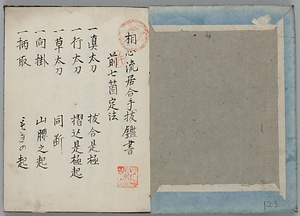 相心流居合手技鑑書
前七箇定法
一真太刀　抜合是極
一行太刀　摺込是極起
一草太刀　同断
一向掛　山腰之起
一柄取　もぎの起
123